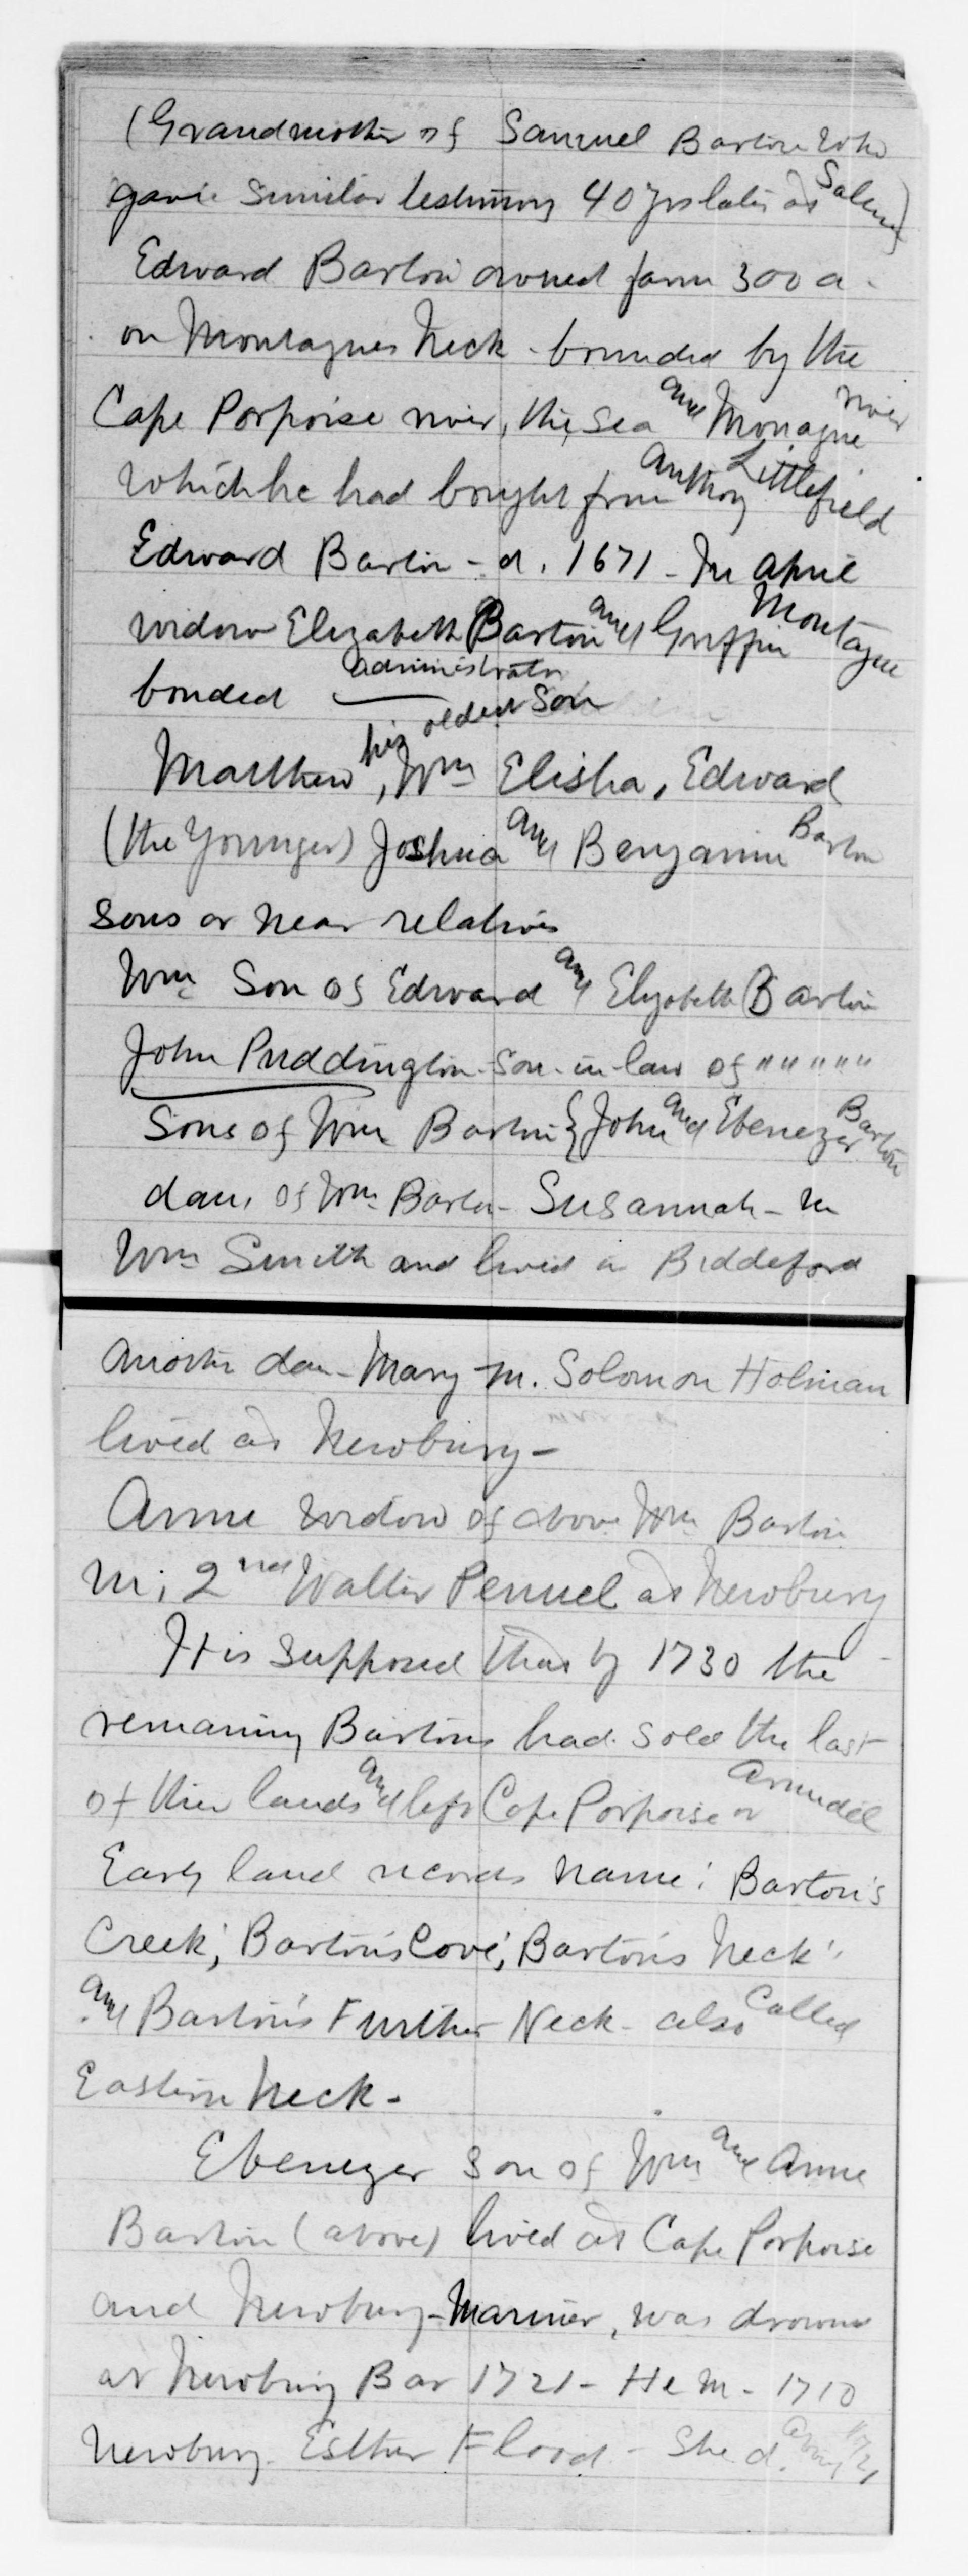 (Grandmother of Samuel Barton who
gave similar testimony 40 yrs later at Salem)
Edward Barton owned farm 300 a.
on Montagues Neck - bounded by the
Cape Porpoise river, the sea and Monague river
which he had bought from Anthony Littlefield
Edward Barton - d. 1671 - In April
widow Elizabeth Barton and Griffin Montague
bonded administrator
his oldest son
Matthew, Wm Elisha, Edward
(the Younger) Joshua and Benjamin Barton
sons or near relatives
Wm Son of Edward and Elizabeth Barton
John Puddington - Son-in-law of " " " " "
Sons of Wm Barton { John and Ebenezer Barton
dau. of Wm. Barton - Susannah - m
Wm Smith and lived in Biddeford
Another dau - Mary - m. Solomon Holman
lived at Newbury -
Anne widow of above Wm Barton
m. 2nd Walter Pennel at Newbury
It is supposed that by 1730 the
remaining Bartons had sold the last
of their lands and left Cape Porpoise or Arundel
Early land records name: Barton's
Creek; Barton's Cove; Barton's Neck;
and Barton's Further Neck - also called
Eastern Neck -
Ebenezer son of Wm and Anne
Barton (above) lived at Cape Porpoise
and Newbury - Mariner, was drown
at Newbury Bar 1721 - He m - 1710
Newbury - Esther Flood - She d.